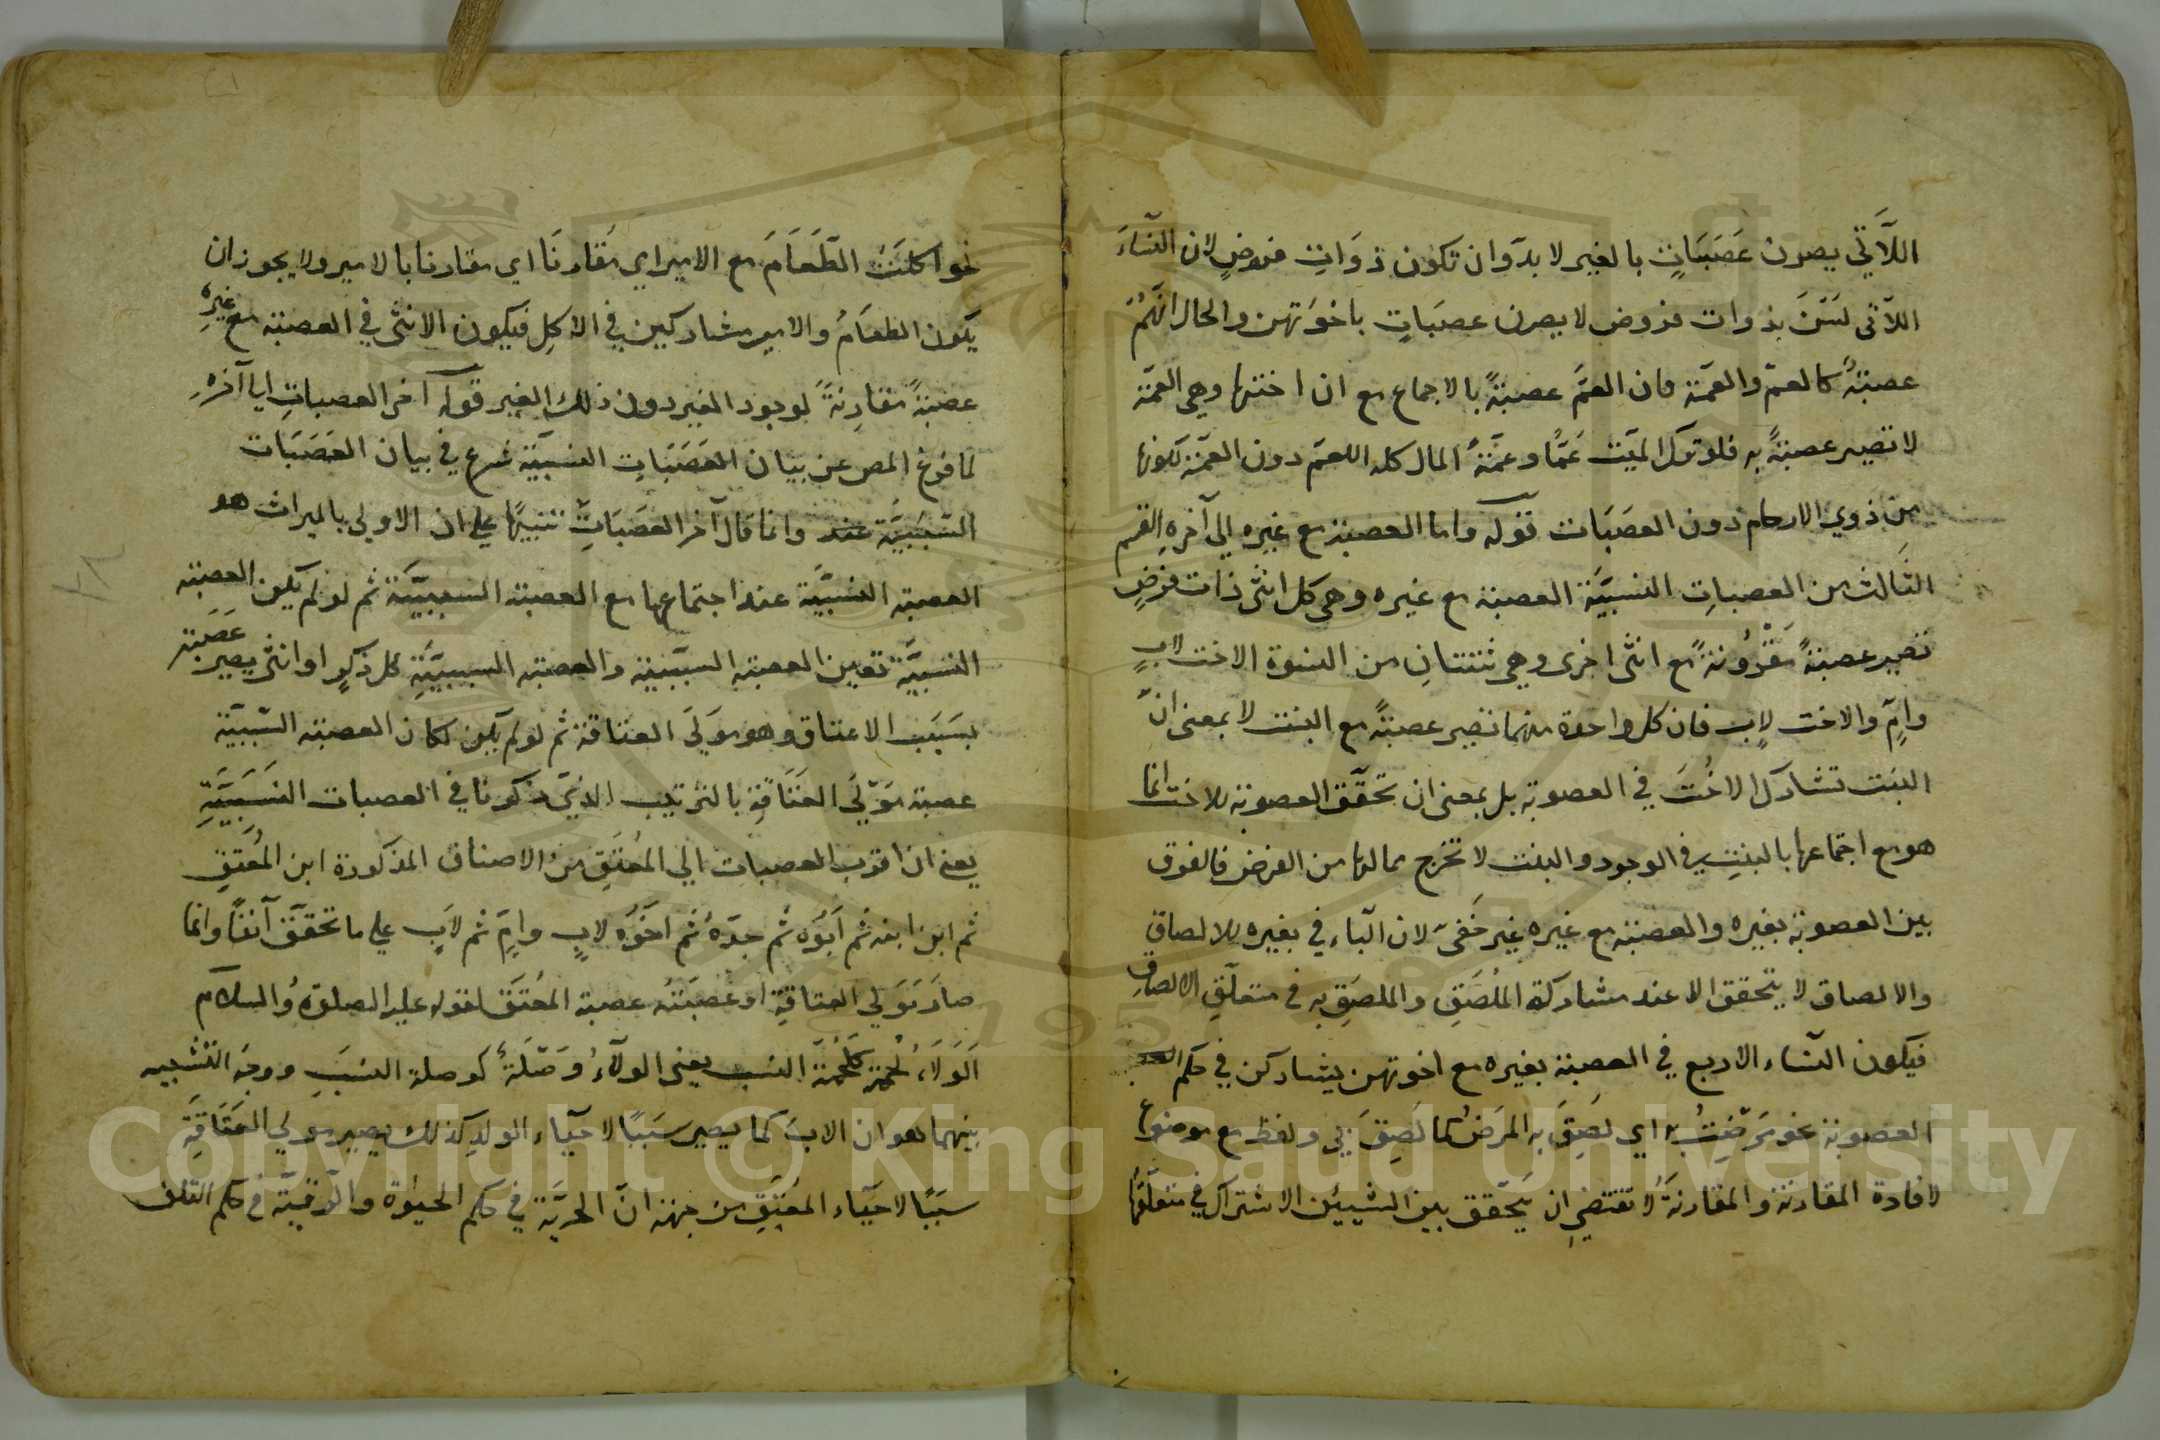 اللَّاتي يصرن عَصَبَاتٍ بالغير لا بدّ وان تكون ذوَاتِ فروضٍ لان النّساءَ
اللاتى لَسْنَ بذوات فروض لا يصرن عصبَاتٍ باخوَتهن والحال انّهم
عصبةٌ كالعمّ والعمّة فان العمَّ عصبةً بالاجماع مع ان اختها وهي العمّة
لا تصير عصبةً به فلو ترك الميّت عَمًّا وعمّةً المال كله للعمّ دون العمّة لكونها
من ذوي الارحام دون العصَبَات قوله واما العصبة مع غيره الي آخرهِ القسم
الثالث من العصباتِ النسبيَّة العصبة مع غيره وهي كل انثى ذات فرضٍ
تصير عصبةً مقْرُونةً مع انثى اخرى وهي ثنتانِ من النسوة الاخت لابٍ
وامٍّ والاخت لابٍ فان كل واحدة منهما تصير عصبةً مع البنت لا بمعنى انّ
البنت تشارك الاخُتَ في العصوبة بل بمعنى ان تحقّق العصوبة للاخت انما
هو مع اجتماعها بالبنتِ في الوجود والبنت لا تخرج مما لها من الفرض فالفرق
بين العصوبة بغيره والعصبة مع غيره غير خَفىّ لان البّاء في بغيره للالصاق
والالصاق لا يتحقق الا عند مشاركة المُلصَقِ والملصَقِ به في متعلّقِ الالصاقِ
فيكون النّساء الاربع في العصبة بغيره مع اخوتهن يشاركن في حكم
العصوبة نحو مَرضْتُ به اي لَصِقَ به المرَضُ كما لَصِقَ بي ولفظ مع موضوع
لافادة المقارنة والمقارنَةُ لا تقتضي ان يَتحقّق بين الشيئين الاشتراك في متعلّقها
نحو اكلتُ الطَّعَامَ مع الامير اي مقَارنَا اي مقارنا بالامير ولا يجوز ان
يكون الطعَامُ والامير مشاركين في الاكِلِ فيكون الانثى في العصبة مع غيرهِ
عصبةً مقارِنةً لوجود الغير دون ذلك الغير قوله آخر العصباتِ الي آخرهِ
لما فرغ المص عن بيان العَصَبَاتِ النسبيّة شرع في بيان العَصَبَات
السّببيَّة عند وانما قال آخر العصَبَاتِ تنبيهًا علي ان الاولى بالميراث هو
العصبة النسبيَّة عند اجتماعها مع العصبة السببيّة ثم لو لم يكن العصبة
النسبيَّة تعين العصبة السبّبية والعصبة السببيَّةِ كل ذكرٍ او انثى يصير عَصَبة
بسَبَبِ الاعتاق وهو مولَى العتاقة ثم لو لم يكن لكان العصبة السّببيّة
عصبة مَولَى العتَاقةِ بالترتيب الذي ذكرنا في العصبات النَسَبيّةِ
يعنى ان اقرب العصبات الي المُعتِقِ من الاصناف المذكورة ابن المُعتِقِ
ثم ابن ابنه ثم اَبُوُه ثم جدّهُ ثم اَخَوُه لابٍ وامٍّ ثم لابٍ علي ما تحقّق آنفًا وانما
صار مَولي العتاقِةِ او عصَبَتُه عصبة المُعتَق لقوله عليه الصلوةُ والسلام
اَلوَلاَءُ لُحْمَةٌ كلُحْمَةِ النسب يعنى الولآءُ وَصْلَةٌ كوصلة النسَبِ ووجه التشبيه
بينهما هو ان الاب كما يصير سَبَبًا لاحيَاء الولدِ كذلك يصير مولي العَتَاقةِ
سبَبًا لاحيَاء المُعتَقِ من جهة انّ الحريّة في حكم الحيوٰة والرقيّة في حكم التلف